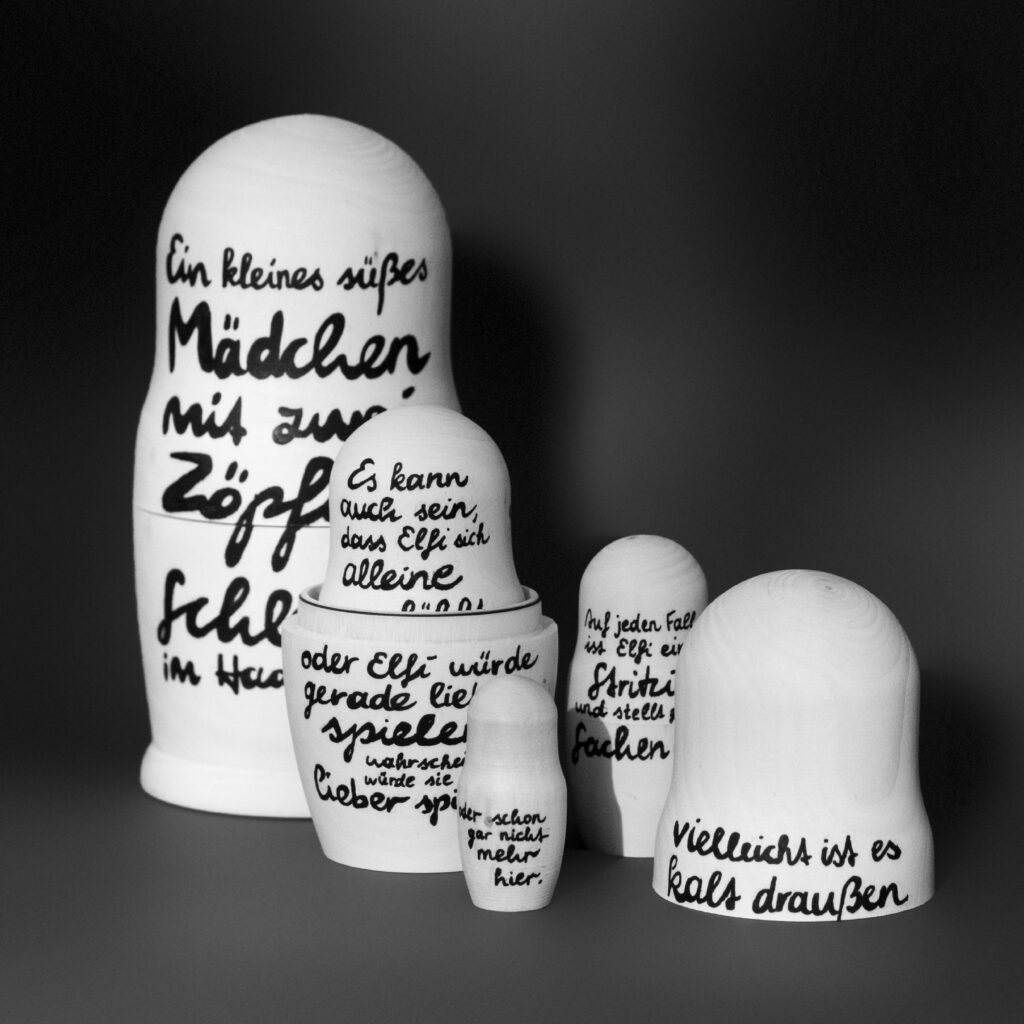 Ein kleines süßes
Mädchen
mit
im
Es kann
auch sein,
dass Elfi sich
alleine
oder Elfi würde
gerade
wahrschei
würde sie
lieber
oder schon
gar nicht
mehr
hier.
Auf jeden Fall
ist Elfi
und stellt
Sachen
vielleicht ist es
kalt draußen